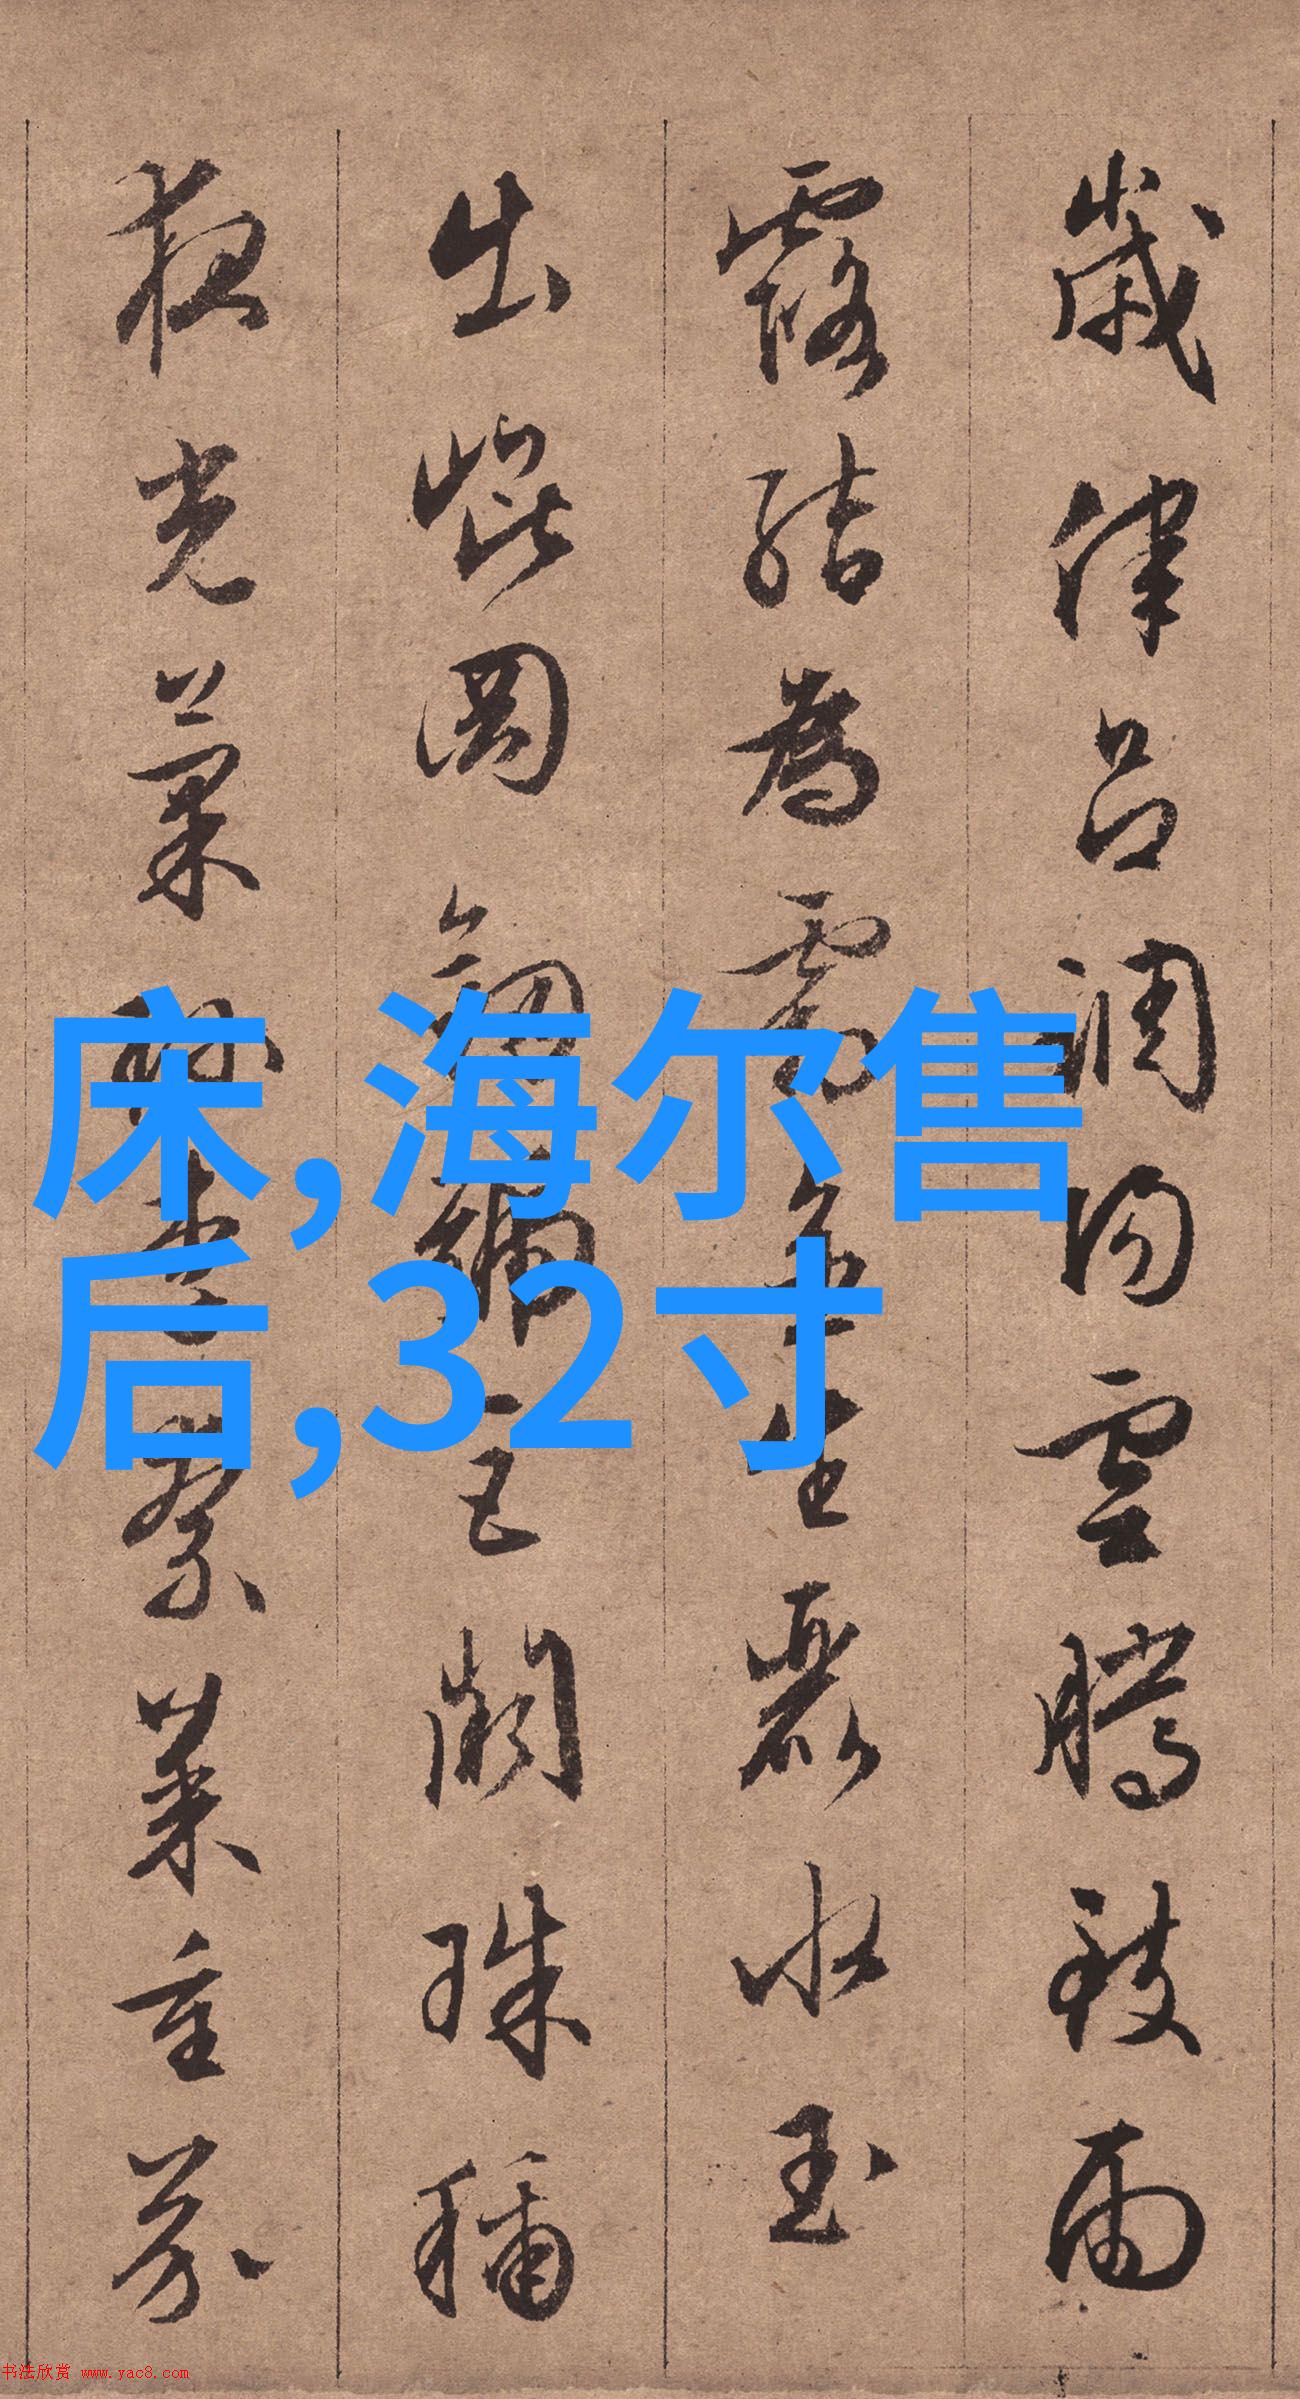 歲律吕調陽雲騰致雨
露結為霜金生麗水玉
出崐岡劒號巨闕珠稱
夜光菓珍李柰菜重芥
床,海尔售
后,32寸
书法欣赏 www.yac8.com